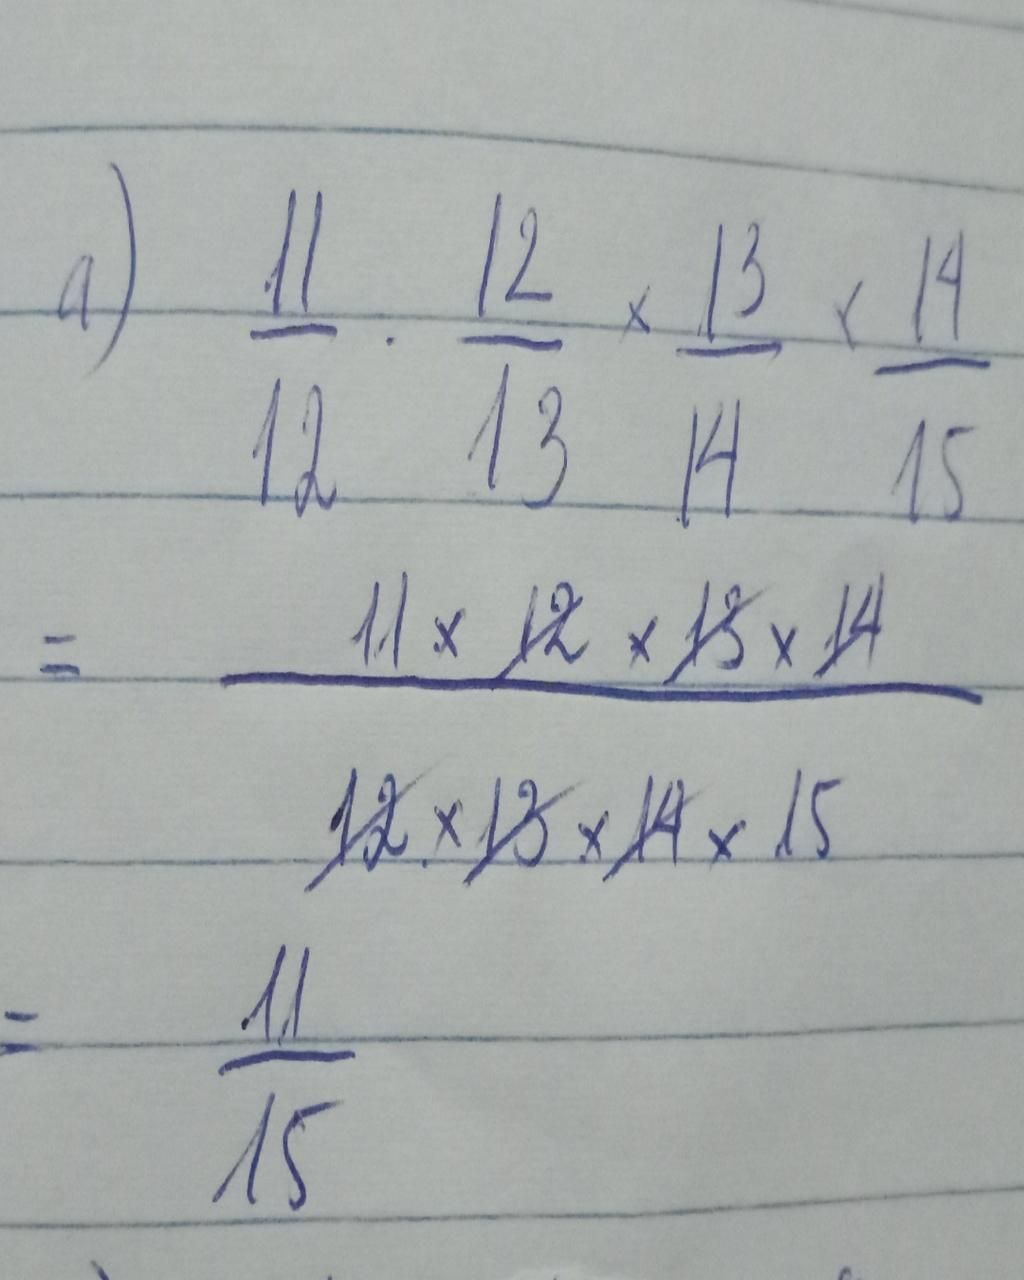 a) 11/12 . 12/13 × 13/14 × 14/15
= 11 × 12 × 13 × 14 / 12 × 13 × 14 × 15
= 11/15